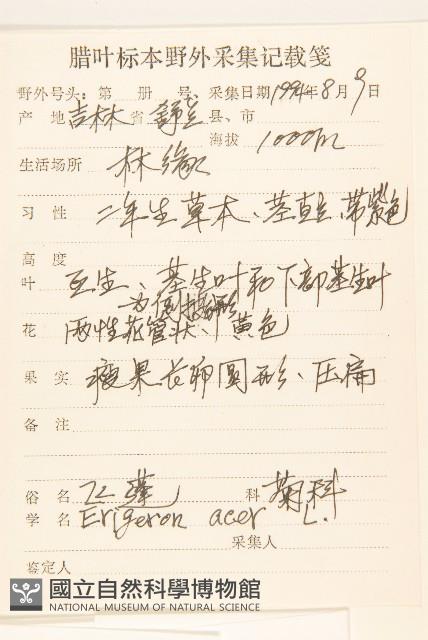 腊叶标本野外采集记载笺
野外号头: 第 册 号 采集日期 1994年8月9日
产 地 吉林 省 县、市
海拔 1000m
生活场所 林缘
习 性 二年生草本、茎直立、带紫色
高 度
叶 互生、基生叶和下部茎生叶
为倒披针形
花 两性花管状、黄色
果 实 瘦果长椭圆形、压扁
备 注
俗 名 飞蓬 科 菊科
学 名 Erigeron acer L.
采集人
鉴定人
國立自然科學博物館
NATIONAL MUSEUM OF NATURAL SCIENCE